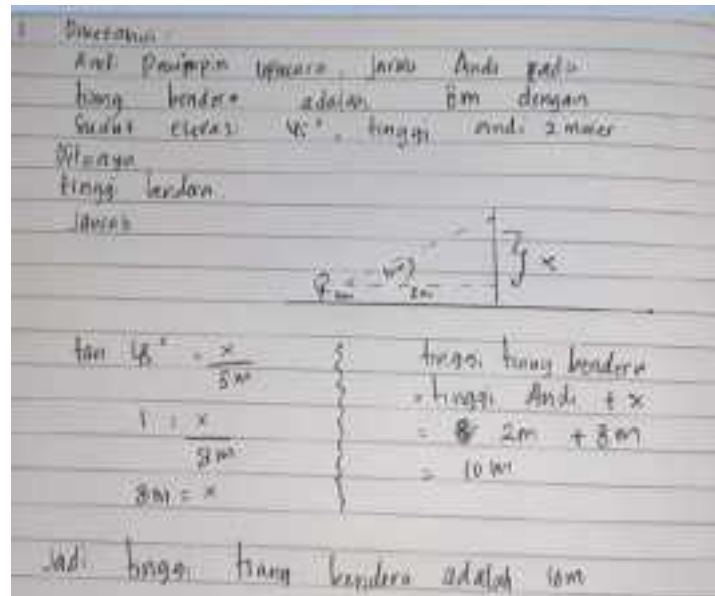 1 Diketahui
Andi Pemimpin upacara, Jarak Andi pada
tiang bendera adalah 8m dengan
Sudut elevasi 45°, tinggi Andi 2 meter
Ditanya
tinggi
Jawab
x
tan 45° = x / 8m
1 = x / 8m
8m = x
tinggi tiang bendera
= tinggi Andi + x
= 2m + 8m
= 10 m
Jadi tinggi tiang bendera adalah 10m